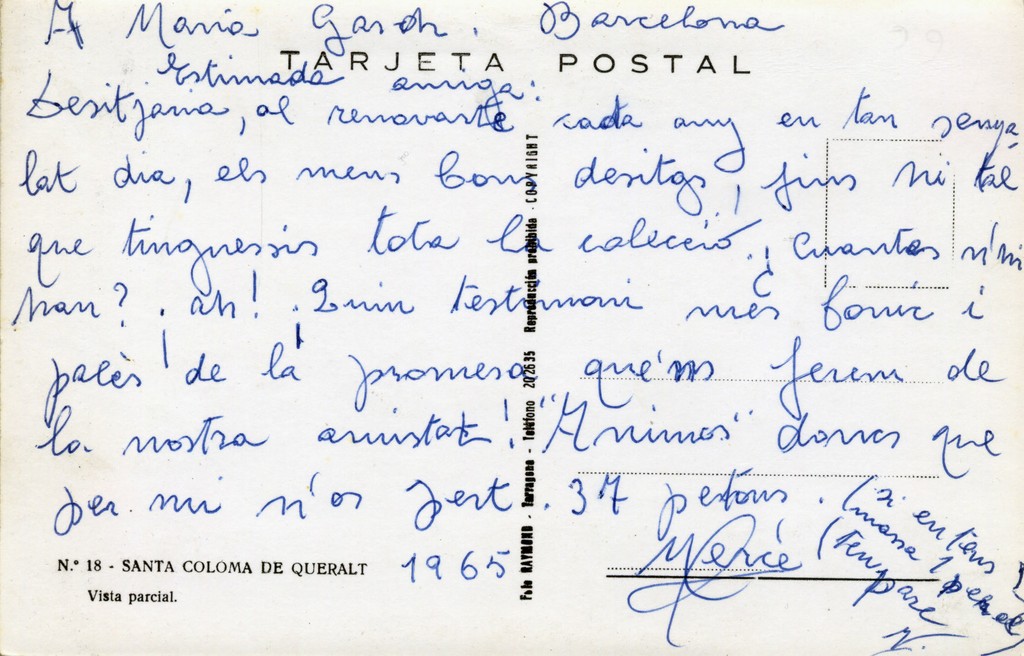 A Maria Gasch. Barcelona
TARJETA POSTAL
Estimada amiga:
Desitjaria, al renovarte cada any en tan senya-
lat dia, els meus bons desitgs, fins hi tot
que tinguessis tota la colecció. ¿Cuantes n'hi
han? . ah! . Quin testimoni més bonic i
palès de la promesa qué'ns ferem de
la nostra amistat! "Animos" doncs que
per mi n'os pert. 37 petons. (si en tens
massa
(ten
Mercè
1965
N.º 18 - SANTA COLOMA DE QUERALT
Vista parcial.
Foto RAYMOND - Tarragona - Teléfono 202635 Reproducción prohibida - COPYRIGHT